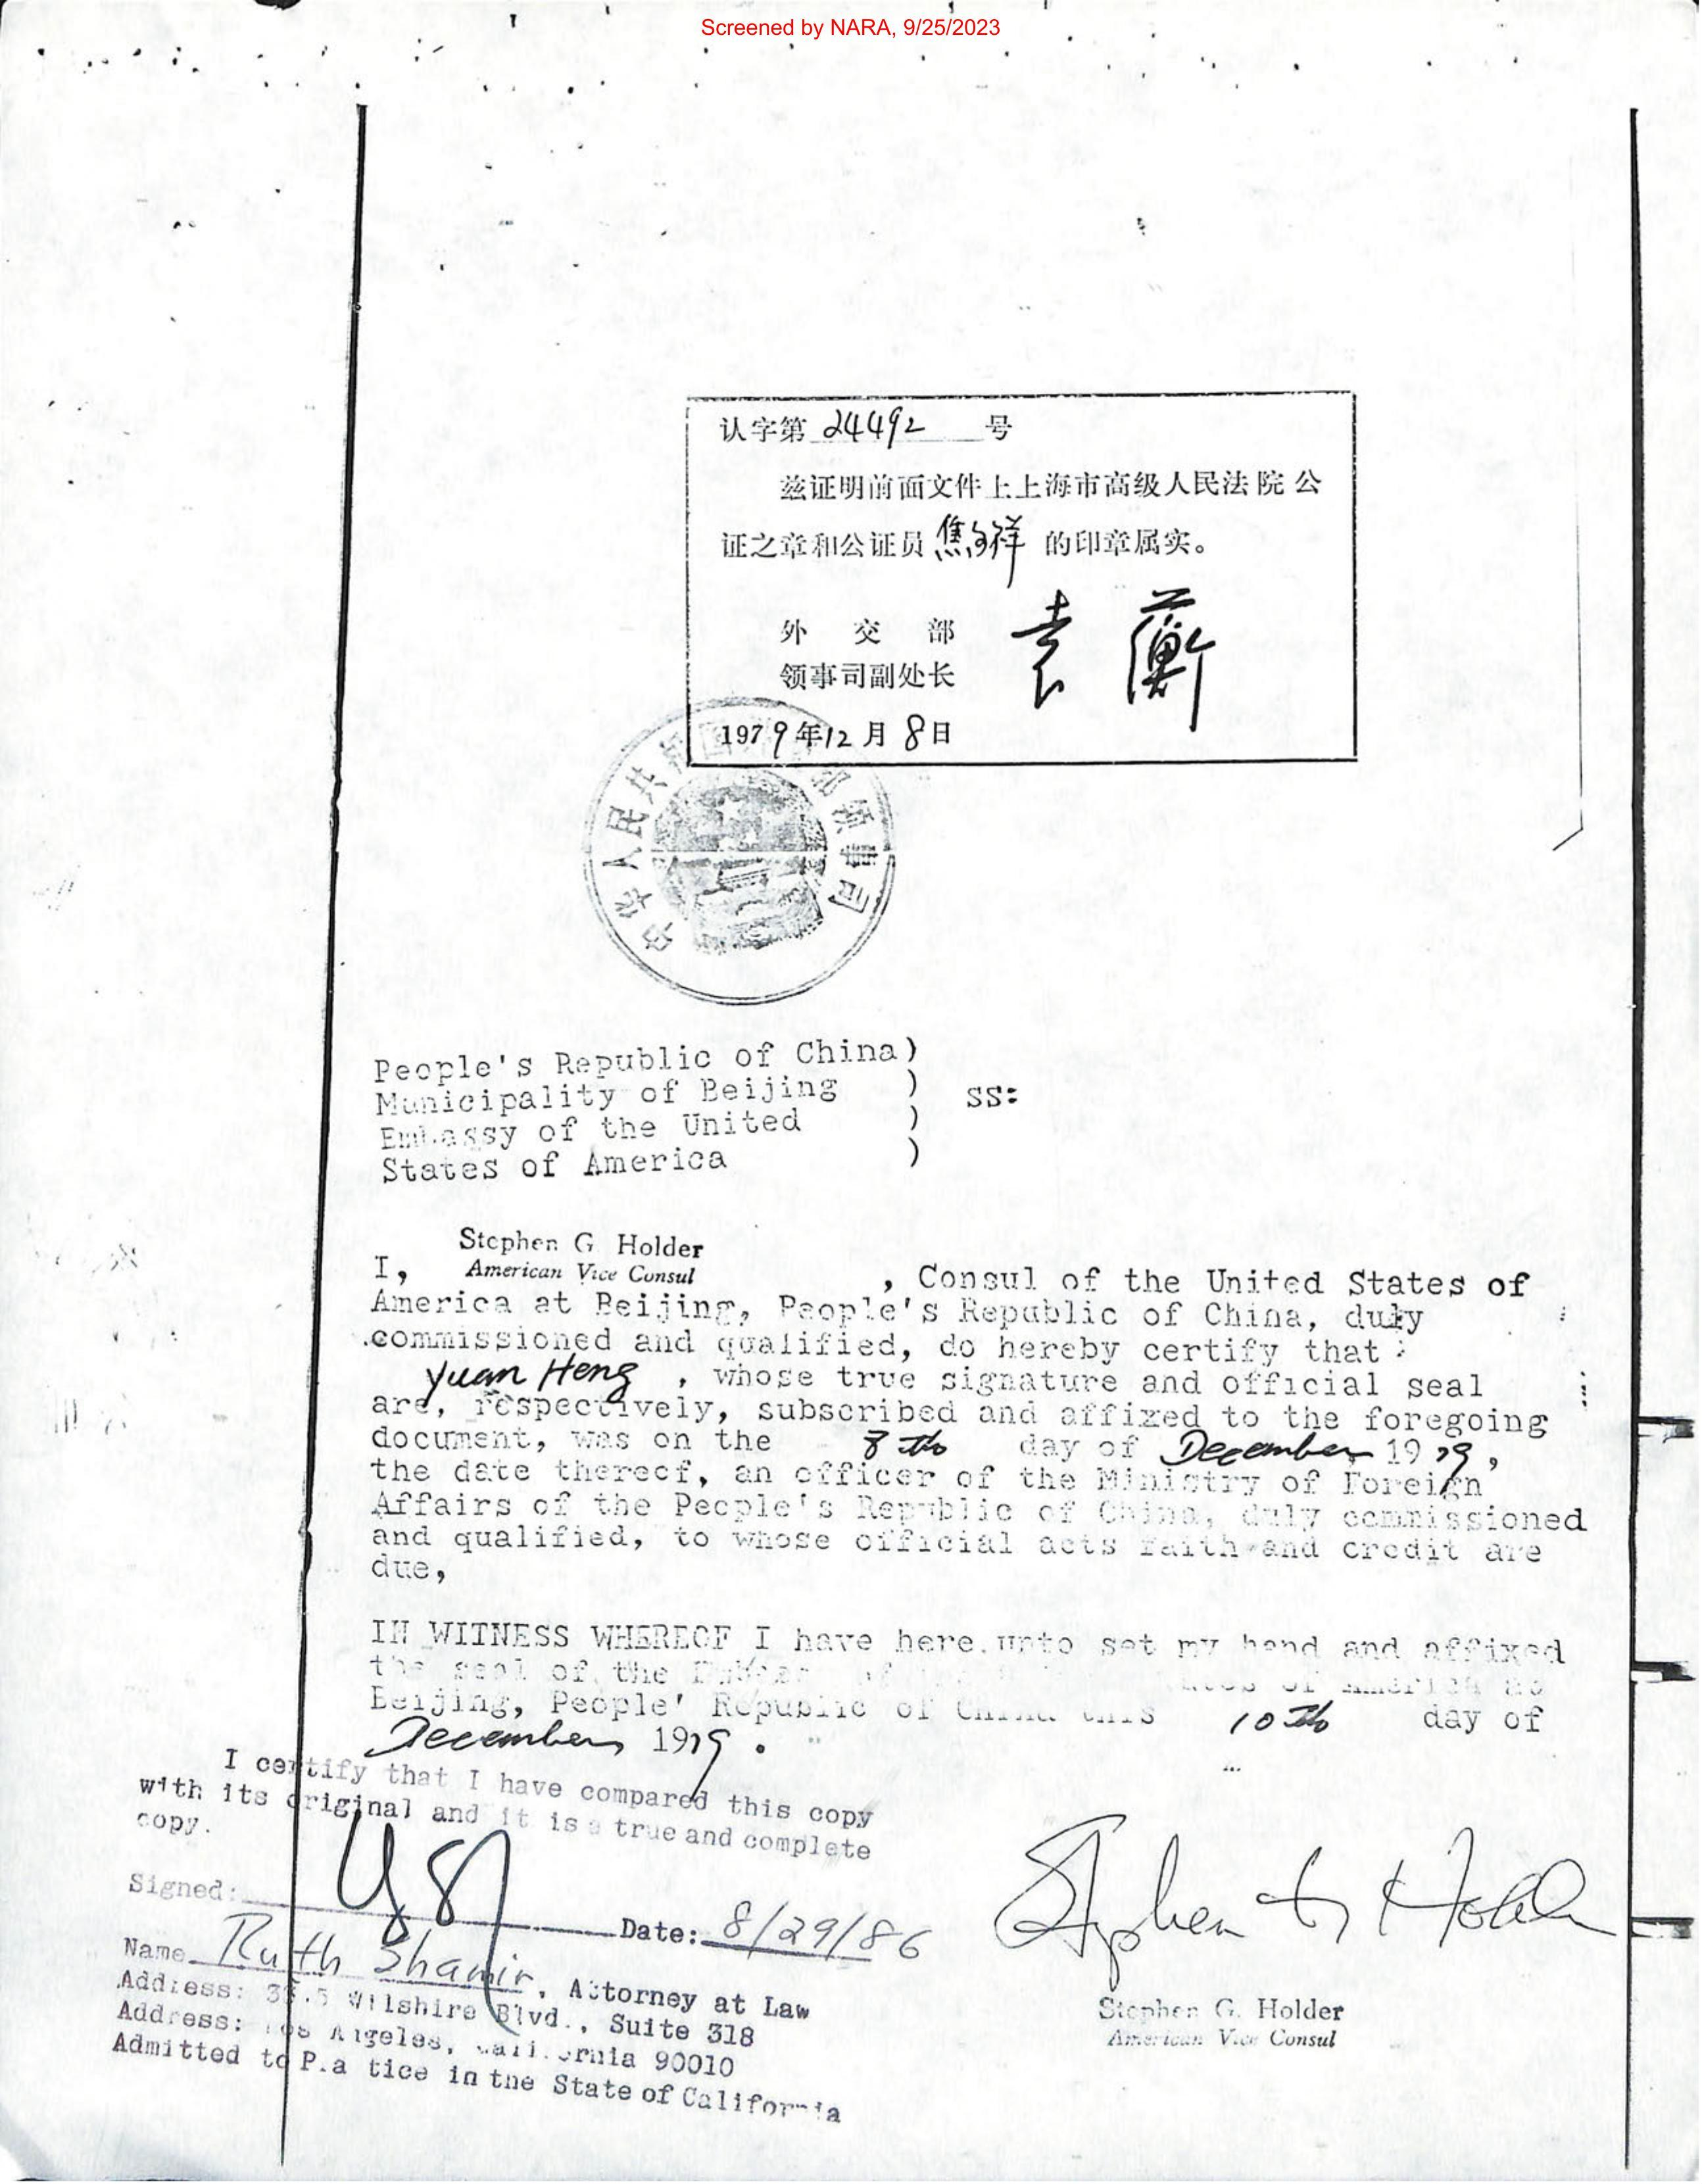 Screened by NARA, 9/25/2023
认字第 24492 号
兹证明前面文件上上海市高级人民法院公
证之章和公证员 焦 祥 的印章属实。
外 交 部
领事司副处长
袁 蘅
1979年12月8日
中华人民共和国 部领事司
People's Republic of China)
Municipality of Beijing )
SS:
Embassy of the United )
States of America )
Stephen G. Holder
American Vice Consul
I, , Consul of the United States of
America at Beijing, People's Republic of China, duly
commissioned and qualified, do hereby certify that
Yuan Heng , whose true signature and official seal
are, respectively, subscribed and affixed to the foregoing
document, was on the 8th day of December 1979,
the date thereof, an officer of the Ministry of Foreign
Affairs of the People's Republic of China, duly commissioned
and qualified, to whose official acts faith and credit are
due,
IN WITNESS WHEREOF I have here unto set my hand and affixed
the seal of the of America at
Beijing, People' Republic of China this 10th day of
December 1979.
I certify that I have compared this copy
with its original and it is a true and complete
copy.
Signed:
Date: 8/29/86
Name Ruth Shamir, Attorney at Law
Address: Wilshire Blvd., Suite 318
Address: Los Angeles, California 90010
Admitted to Practice in the State of California
Stephen G Holder
Stephen G. Holder
American Vice Consul